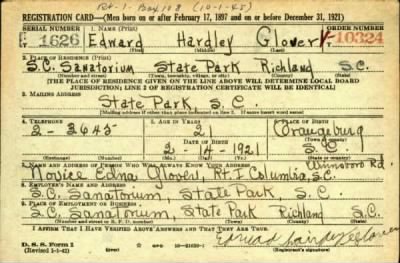 Rt-1-Box 108 (10-1-45)
REGISTRATION CARD—(Men born on or after February 17, 1897 and on or before December 31, 1921)
SERIAL NUMBER 1. NAME (Print) ORDER NUMBER
T 1626 Edward Hardley Glover V 10324
(First) (Middle) (Last)
2. PLACE OF RESIDENCE (Print)
S.C. Sanatorium State Park Richland S.C.
(Number and street) (Town, township, village, or city) (County) (State)
[THE PLACE OF RESIDENCE GIVEN ON THE LINE ABOVE WILL DETERMINE LOCAL BOARD
JURISDICTION; LINE 2 OF REGISTRATION CERTIFICATE WILL BE IDENTICAL]
3. MAILING ADDRESS
State Park, S.C.
[Mailing address if other than place indicated on line 2. If same insert word same]
4. TELEPHONE 5. AGE IN YEARS 6. PLACE OF BIRTH
2-3645 Orangeburg
DATE OF BIRTH (Town or county)
2 14 1921 S.C.
(Mo.) (Day) (Yr.) (State or country)
7. NAME AND ADDRESS OF PERSON WHO WILL ALWAYS KNOW YOUR ADDRESS Winnsboro Rd.
Edna Glover, Rt. 1 Columbia, S.C.
8. EMPLOYER'S NAME AND ADDRESS
S.C. Sanatorium, State Park S.C.
9. PLACE OF EMPLOYMENT OR BUSINESS
S.C. Sanatorium, State Park Richland S.C.
(Number and street or R. F. D. number) (Town) (County) (State)
I AFFIRM THAT I HAVE VERIFIED ABOVE ANSWERS AND THAT THEY ARE TRUE.
D. S. S. Form 1
(Revised 1-1-42) (over) 16-21630-1 Edward Glover
(Registrant's signature)